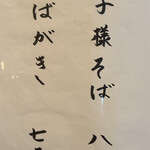 子様そば 八
ばがき 七